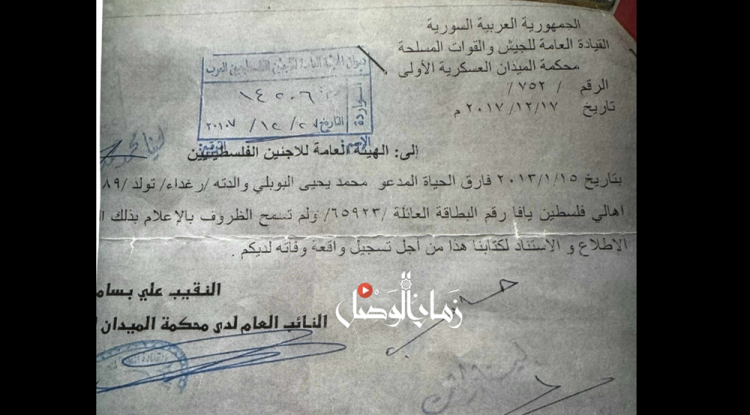 الجمهورية العربية السورية
القيادة العامة للجيش والقوات المسلحة
محكمة الميدان العسكرية الأولى
الرقم / ٧٥٢/
تاريخ ٢٠١٧/١٢/١٧ م
ديوان الهيئة العامة للاجئين الفلسطينيين العرب
الواردة
١٤٢٠٦
التاريخ ٢٧/ ١٢ / ٢٠١٧
إلى: الهيئة العامة للاجئين الفلسطينيين
بتاريخ ٢٠١٣/١/١٥ فارق الحياة المدعو محمد يحيى البويلي والدته /رغداء/ تولد /٨٩
اهالي فلسطين يافا رقم البطاقة العائلة /٦٥٩٢٣/ ولم تسمح الظروف بالإعلام بذلك
الإطلاع و الاستناد لكتابنا هذا من أجل تسجيل واقعة وفاته لديكم .
النقيب علي بسام
النائب العام لدى محكمة الميدان
زمان الوصل